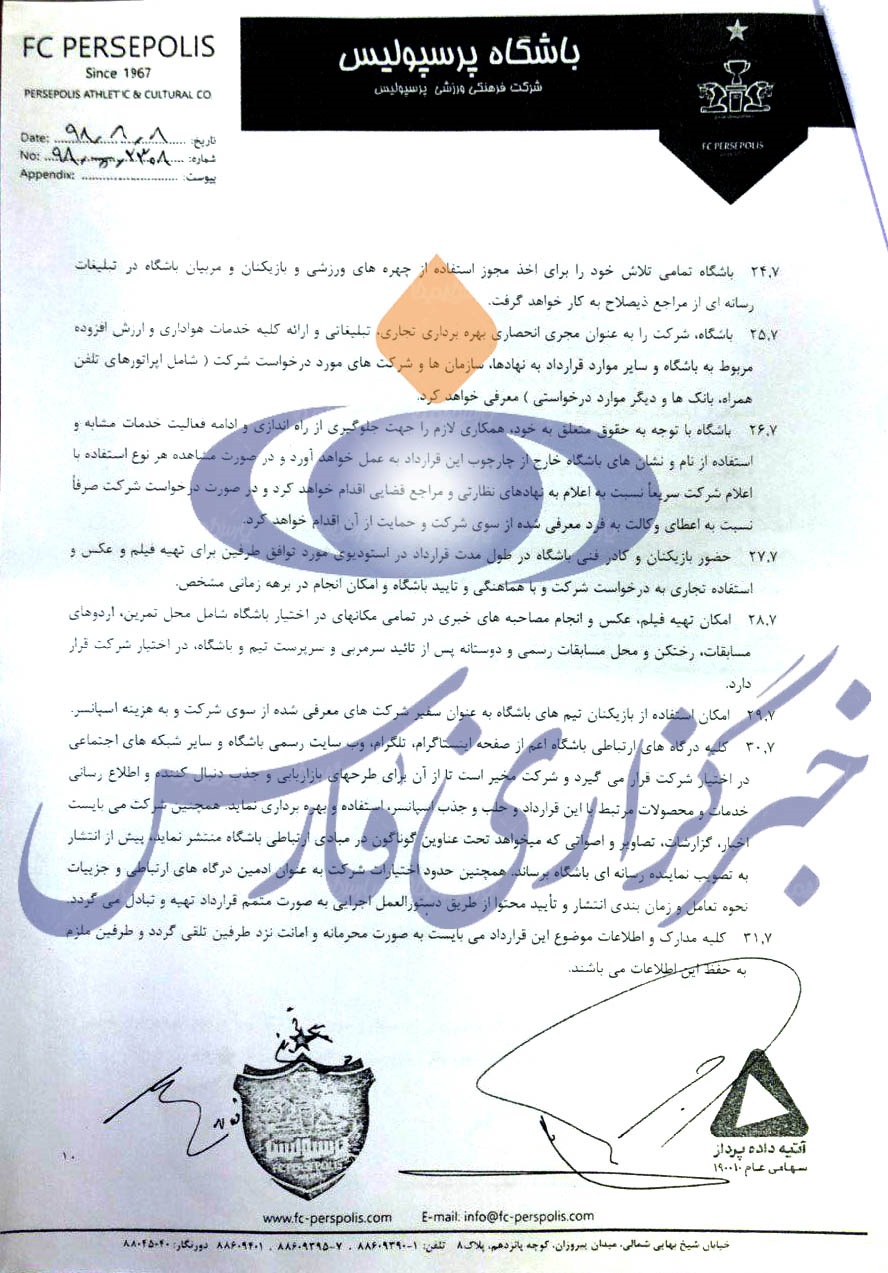 FC PERSEPOLIS
Since 1967
PERSEPOLIS ATHLETIC & CULTURAL CO.
باشگاه پرسپولیس
شرکت فرهنگی ورزشی پرسپولیس
FC PERSEPOLIS
Date: ۹۸ تاریخ:
No: ۹۸ شماره:
Appendix: پیوست:
۲۴.۷ باشگاه تمامی تلاش خود را برای اخذ مجوز استفاده از چهره های ورزشی و بازیکنان و مربیان باشگاه در تبلیغات
رسانه ای از مراجع ذیصلاح به کار خواهد گرفت.
۲۵.۷ باشگاه، شرکت را به عنوان مجری انحصاری بهره برداری تجاری، تبلیغاتی و ارائه کلیه خدمات هواداری و ارزش افزوده
مربوط به باشگاه و سایر موارد قرارداد به نهادها، سازمان ها و شرکت های مورد درخواست شرکت ( شامل اپراتورهای تلفن
همراه، بانک ها و دیگر موارد درخواستی ) معرفی خواهد کرد.
۲۶.۷ باشگاه با توجه به حقوق متعلق به خود، همکاری لازم را جهت جلوگیری از راه اندازی و ادامه فعالیت خدمات مشابه و
استفاده از نام و نشان های باشگاه خارج از چارچوب این قرارداد به عمل خواهد آورد و در صورت مشاهده هر نوع استفاده با
اعلام شرکت سریعاً نسبت به اعلام به نهادهای نظارتی و مراجع قضایی اقدام خواهد کرد و در صورت درخواست شرکت صرفاً
نسبت به اعطای وکالت به فرد معرفی شده از سوی شرکت و حمایت از آن اقدام خواهد کرد.
۲۷.۷ حضور بازیکنان و کادر فنی باشگاه در طول مدت قرارداد در استودیوی مورد توافق طرفین برای تهیه فیلم و عکس و
استفاده تجاری به درخواست شرکت و با هماهنگی و تایید باشگاه و امکان انجام در برهه زمانی مشخص.
۲۸.۷ امکان تهیه فیلم، عکس و انجام مصاحبه های خبری در تمامی مکانهای در اختیار باشگاه شامل محل تمرین، اردوهای
مسابقات، رختکن و محل مسابقات رسمی و دوستانه پس از تائید سرمربی و سرپرست تیم و باشگاه، در اختیار شرکت قرار
دارد.
۲۹.۷ امکان استفاده از بازیکنان تیم های باشگاه به عنوان سفیر شرکت های معرفی شده از سوی شرکت و به هزینه اسپانسر.
۳۰.۷ کلیه درگاه های ارتباطی باشگاه اعم از صفحه اینستاگرام، تلگرام، وب سایت رسمی باشگاه و سایر شبکه های اجتماعی
در اختیار شرکت قرار می گیرد و شرکت مخیر است تا از آن برای طرحهای بازاریابی و جذب دنبال کننده و اطلاع رسانی
خدمات و محصولات مرتبط با این قرارداد و جلب و جذب اسپانسر، استفاده و بهره برداری نماید. همچنین شرکت می بایست
اخبار، گزارشات، تصاویر و اصواتی که میخواهد تحت عناوین گوناگون در مبادی ارتباطی باشگاه منتشر نماید، پیش از انتشار
به تصویب نماینده رسانه ای باشگاه برساند. همچنین حدود اختیارات شرکت به عنوان ادمین درگاه های ارتباطی و جزییات
نحوه تعامل و زمان بندی انتشار و تأیید محتوا از طریق دستورالعمل اجرایی به صورت متمم قرارداد تهیه و تبادل می گردد.
۳۱.۷ کلیه مدارک و اطلاعات موضوع این قرارداد می بایست به صورت محرمانه و امانت نزد طرفین تلقی گردد و طرفین ملزم
به حفظ این اطلاعات می باشند.
خبرگزاری فارس
آتیه داده پرداز
سهامی عام ۱۹۰۰۱۰
۱۰
www.fc-perspolis.com E-mail: info@fc-perspolis.com
خیابان شیخ بهایی شمالی، میدان پیروزان، کوچه پانزدهم، پلاک۸ تلفن: ۱-۸۸۶۰۹۳۹۰ ، ۷-۸۸۶۰۹۳۹۵ ، ۸۸۶۰۹۴۰۱ دورنگار: ۸۸۰۴۵۰۴۰